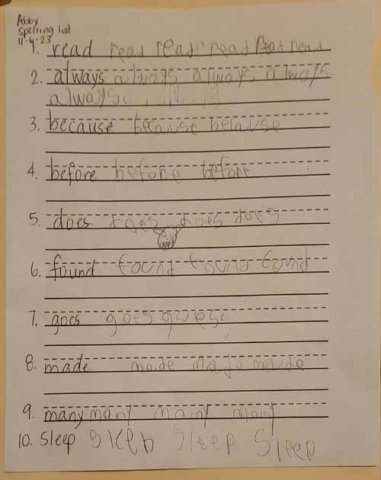 Abby
Spelling list
11-4-23
1. read read read read read read
2. always always always always
always
3. because because because
4. before before before
5. does does does does
6. found found found found
7. goes goes goes
8. made made made made
9. many many many many
10. Sleep Sleep Sleep Sleep